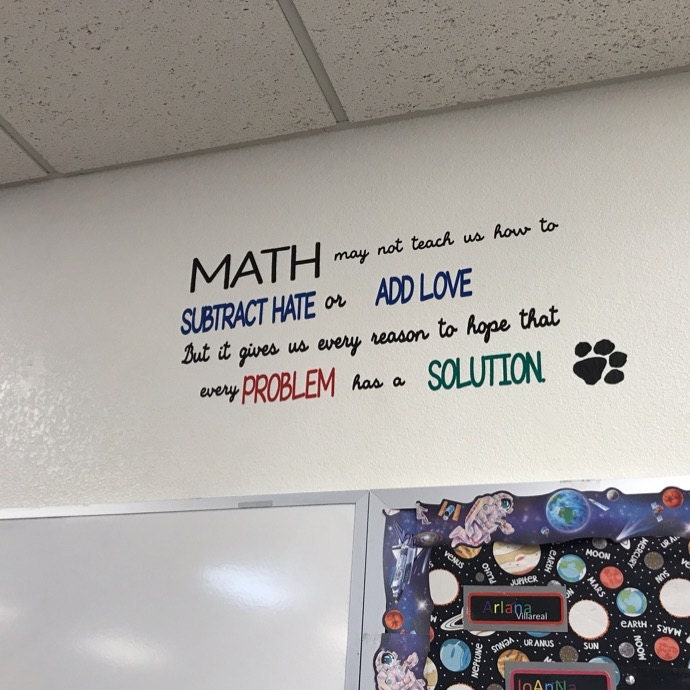 MATH may not teach us how to
SUBTRACT HATE or ADD LOVE
But it gives us every reason to hope that
every PROBLEM has a SOLUTION.
VENUS
PLUTO
JUPITER
EARTH
MOON
MARS
MERCURY
SUN
Ariana
Villareal
EARTH
MARS
NEPTUNE
VENUS
URANUS
SUN
MOON
JoAnNa